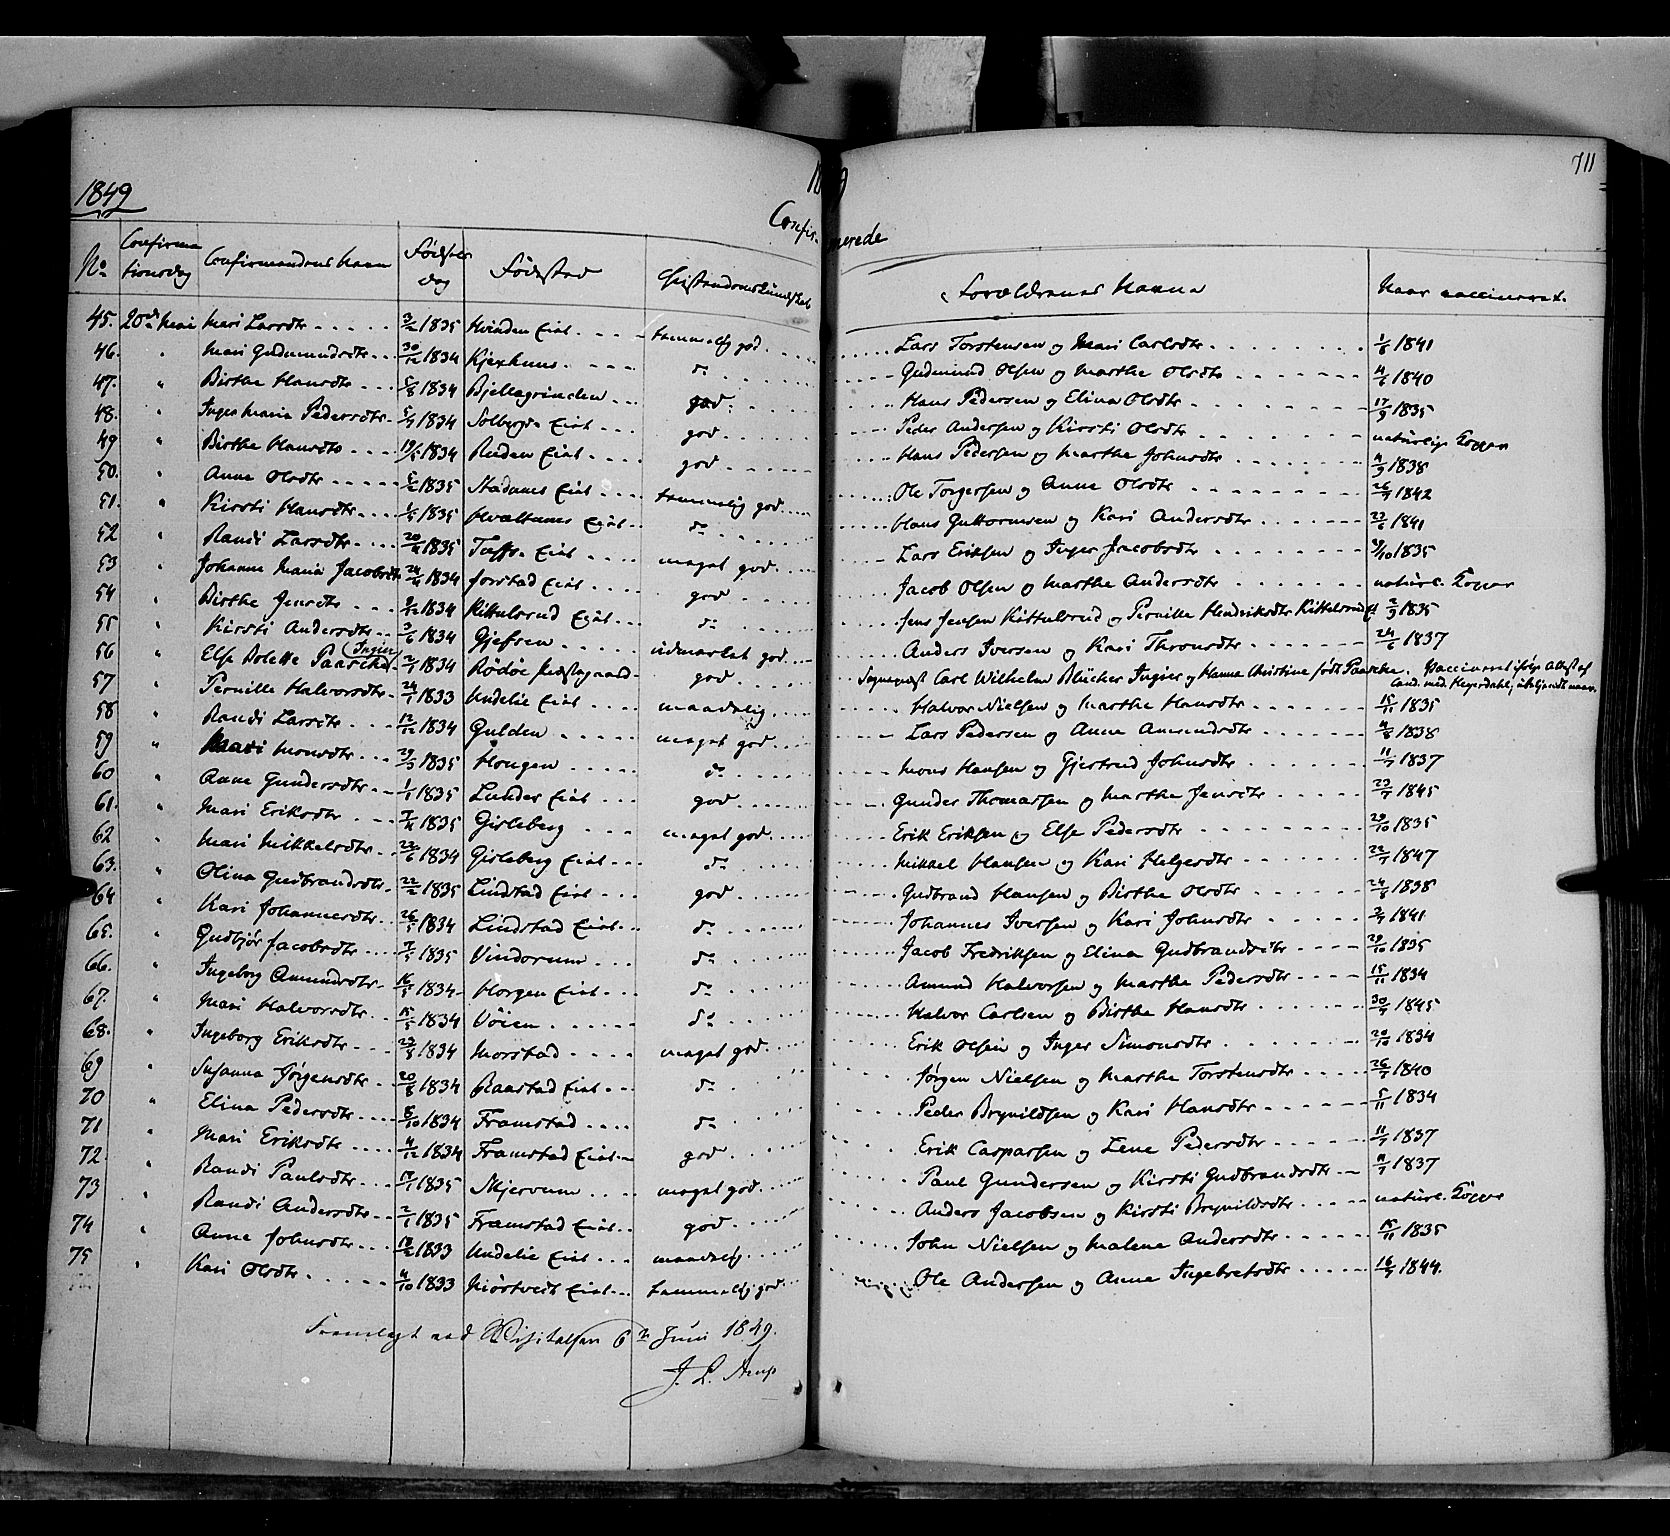 1849
711
Confirmerede
No Confirmationsdag Confirmandens Navn Fødselsdag Fødested Christendomskundskab Forældrenes Navne Naar vaccineret.
45. 20de Mai Mari Larsdtr 1835 Hvinden Eial temmelig god Lars Torstensen og Mari Carlsdtr 1841
46. " Mari Gudmundsdtr 30/12 1834 do Gudmund Olsen og Marthe Olsdtr 1840
47. " Birthe Hansdtr 1834 Bjellagrinden god Hans Pedersen og Elina Olsdtr 17/9 1835
48. " Inger Maria Pedersdtr 1834 Solbergs Eial god Peder Andersen og Kirsti Olsdtr naturlige Kopper
49 " Birthe Hansdtr 1834 Ruden Eial god Hans Pedersen og Marthe Johnsdtr 1838
50. " Anne Olsdtr 1835 Eial temmelig god Ole Torgersen og Anne Olsdtr 1842
51. " Kirsti Hansdtr 1835 Eial do Hans Guttormsen og Kari Andersdtr 1841
52 " Randi Larsdtr 1835 Eial meget god Lars Eriksen og Inger Jacobsdtr 1835
53 " Johanne Maria Jacobsdtr 1834 Jorstad Eial god Jacob Olsen og Marthe Andersdtr naturl. Kopper
54 " Birthe Jensdtr 1834 Kittelsrud Eial do Jens Jensen Kittelsrud og Pernille Hendriksdtr Kittelsrud 1835
55 " Kirsti Andersdtr 3/6 1834 Gjefsen udmærket god Anders Iversen og Kari Thronsdtr 24/6 1837
56 " Else Bolette Paaschen (Ingier) 1834 Rødøe Præstegaard god Sognepræst Carl Wilhelm Blücher Ingier og Hanna Christine født Paaschen. Vaccineret ifølge Attest af Cand. med. Heyerdahl, ubekjendt naar.
57 " Pernille Halvorsdtr 1833 Undelie Eial maadelig Halvor Nielsen og Marthe Hansdtr 15/11 1835
58 " Randi Larsdtr 12/12 1834 Gulden meget god Lars Pedersen og Anne Amundsdtr 1838
59 " Mari Monsdtr 29/3 1835 Hougen do Mons Hansen og Gjertrud Johnsdtr 1837
60 " Anne Gundersdtr 1/1 1835 Lunder Eial god Gunder Thomassen og Marthe Jensdtr 23/7 1845
61. " Mari Eriksdtr 1835 Girleberg meget god Erik Eriksen og Else Pedersdtr 29/10 1835
62 " Mari Mikkelsdtr 23/6 1834 Girleberg Eial do Mikkel Hansen og Kari Helgesdtr 22/7 1847
63. " Olina Gudbrandsdtr 22/2 1835 Lindstad Eial god Gudbrand Hansen og Birthe Olsdtr 24/8 1838
64 " Kari Johannesdtr 26/5 1834 Lindstad Eial do Johannes Iversen og Kari Johnsdtr 1841
65. " Gudbjør Jacobsdtr 1835 Vindorum do Jacob Fredriksen og Elina Gudbrandsdtr 29/10 1835
66. " Ingeborg Amundsdtr 16/5 1834 Horgen Eial do Amund Halvorsen og Marthe Pedersdtr 15/11 1834
67. " Mari Halvorsdtr 15/5 1834 Vøien do Halvor Carlsen og Birthe Hansdtr 1845
68. " Ingeborg Eriksdtr 23/8 1834 Morstad meget god Erik Olsen og Inger Simonsdtr 20/10 1834
69 " Susanna Jørgensdtr 20/8 1834 Raastad Eial do Jørgen Nielsen og Marthe Torstensdtr 26/7 1840
70 " Elina Pedersdtr 1834 Framstad do Peder Brynildsen og Kari Hansdtr 5/11 1834
71 " Mari Eriksdtr 4/12 1834 Framstad Eial god Erik Caspersen og Lene Pedersdtr 11/7 1837
72. " Randi Paulsdtr 1835 Skjervum meget god Paul Gundersen og Kirsti Gudbrandsdtr 1837
73 " Randi Andersdtr 2/1 1835 Framstad Eial god Anders Jacobsen og Kirsti Brynildsdtr naturl. Kopper
74 " Anne Johnsdtr 1833 Undelie Eial maadelig John Nielsen og Malene Andersdtr 15/11 1835
75 " Kari Olsdtr 4/10 1833 Mørtvedt Eial temmelig god Ole Andersen og Anne Ingebretsdtr 16/7 1844.
Fremlagt ved Visitatsen 6te Juni 1849.
J. L. Arup